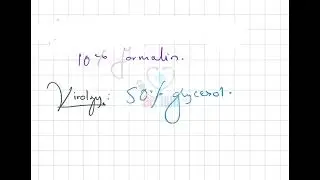 10% formalin.
Virology: 50% glycerol.